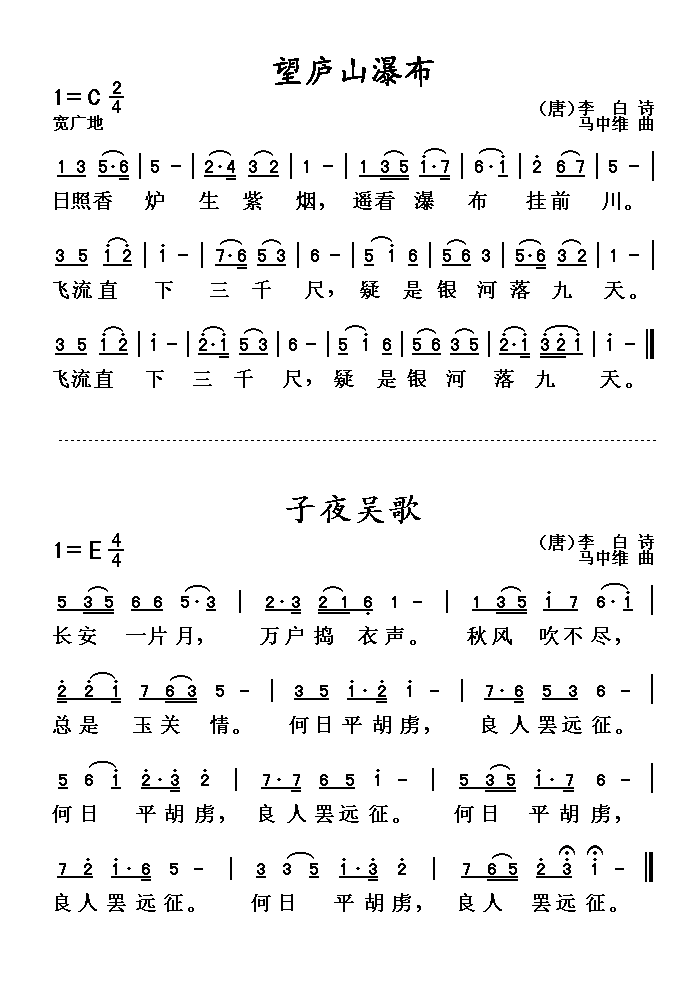 望庐山瀑布
1=C 2/4
（唐）李 白 诗
宽广地
马中维 曲
1 3 5·6 | 5 - | 2·4 3 2 | 1 - | 1 3 5 i·7 | 6·i | 2̇ 6 7 | 5 - |
日照香 炉 生 紫 烟， 遥看 瀑 布 挂前 川。
3 5 i 2̇ | i - | 7·6 5 3 | 6 - | 5 i 6 | 5 6 3 | 5·6 3 2 | 1 - |
飞流直 下 三千 尺，疑 是银 河落九 天。
3 5 i 2̇ | i - | 2̇·i 5 3 | 6 - | 5 i 6 | 5 6 3 5 | 2̇·i 3̇ 2̇ i | i - ‖
飞流直 下 三千 尺，疑 是银 河 落九 天。
子夜吴歌
1=E 4/4
（唐）李 白 诗
马中维 曲
5 3 5 6 6 5·3 | 2·3 2 1 6̣ 1 - | 1 3 5 i 7 6·i |
长安 一片月， 万户捣 衣声。 秋风 吹不尽，
2̇ 2̇ i 7 6 3 5 - | 3 5 i·2̇ i - | 7·6 5 3 6 - |
总是 玉关 情。 何日平胡虏， 良人罢远征。
5 6 i 2̇·3̇ 2̇ | 7·7 6 5 i - | 5 3 5 i·7 6 |
何日 平胡虏，良人罢远征。 何日 平胡虏，
7 2̇ i·6 5 - | 3 3 5 i·3̇ 2̇ | 7 6 5 2̇ 3̇ i - ‖
良人罢 远征。 何日 平胡虏， 良人 罢远征。